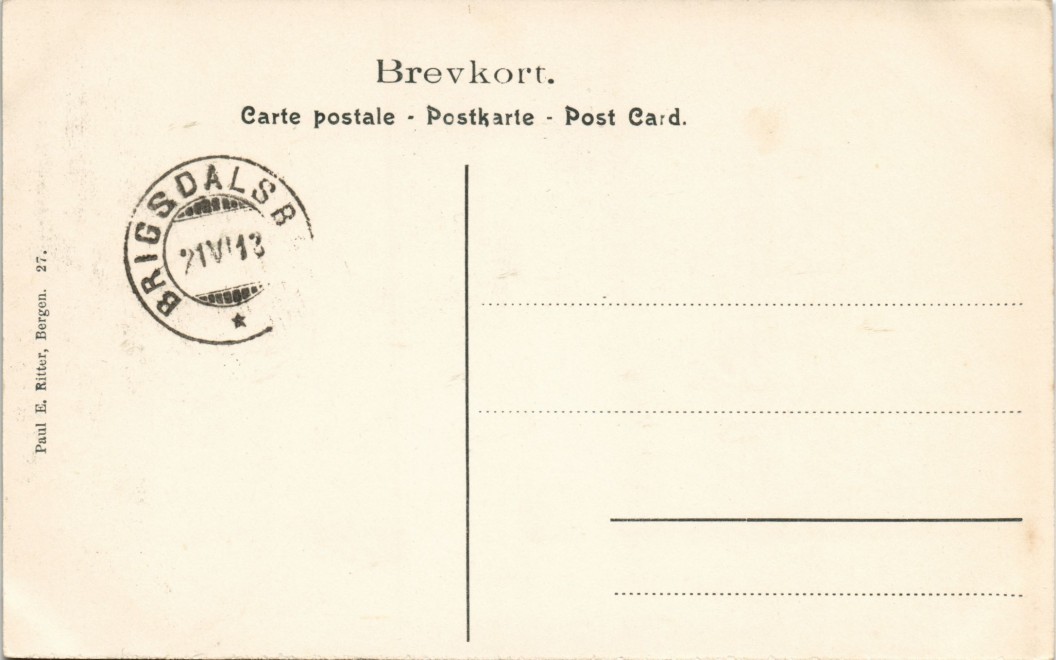 Brevkort.
Carte postale - Postkarte - Post Card.
BRIGSDALSB
21 VI 13
Paul E. Ritter, Bergen. 27.